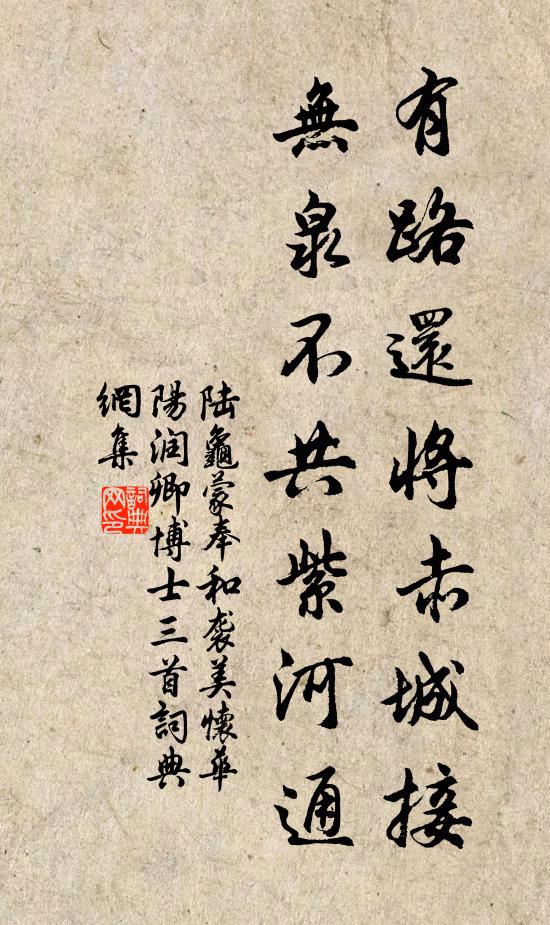 有路還將赤城接
無泉不共紫河通
陸龜蒙奉和袭美懷華
陽润卿博士三首詞典
網集
詞典
网印